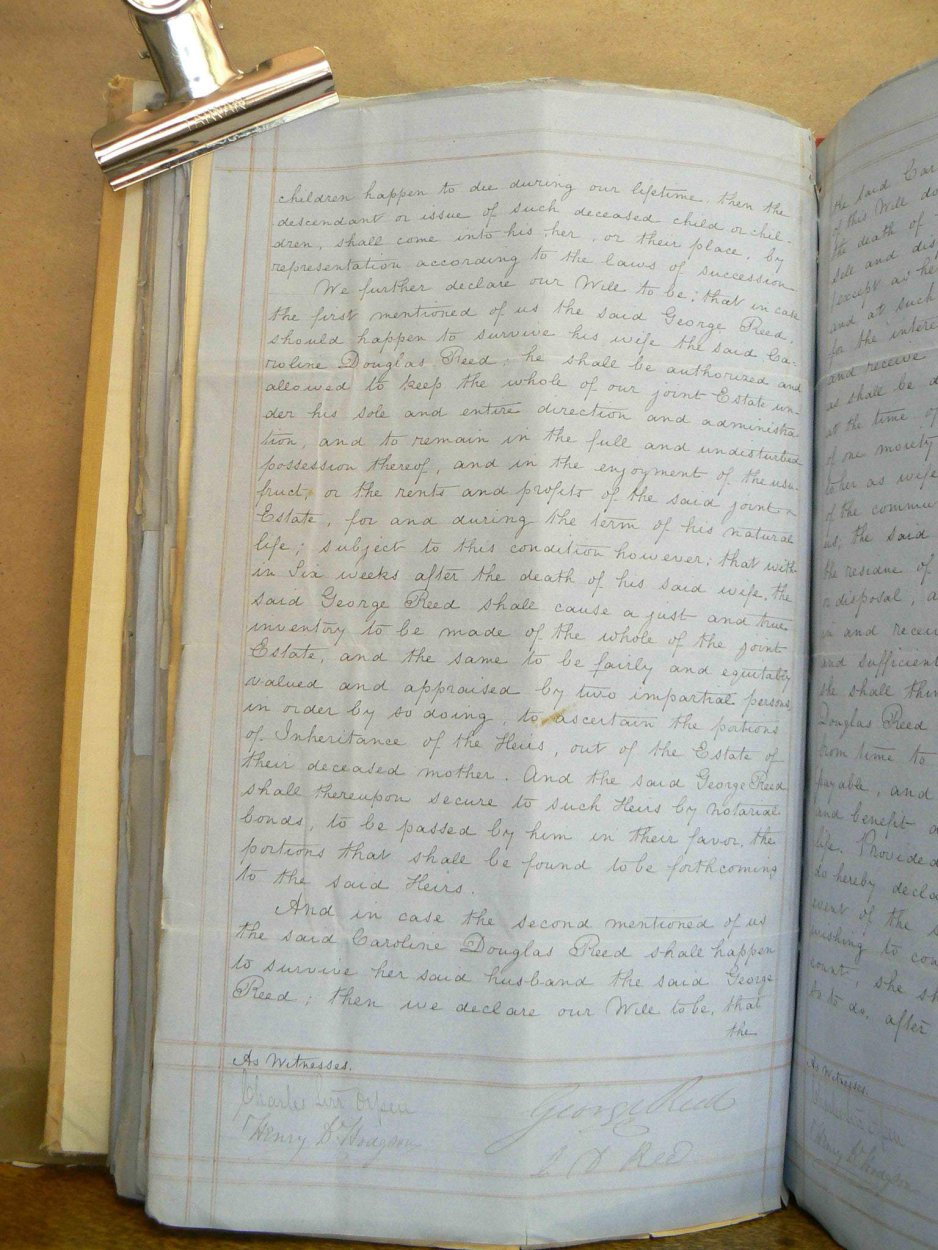 children happen to die during our lifetime, then the
descendant or issue of such deceased child or chil-
dren, shall come into his, her, or their place, by
representation according to the laws of succession
We further declare our Will to be; that in case
the first mentioned of us the said George Reed,
should happen to survive his wife the said Ca-
roline Douglas Reed; he shall be authorized and
allowed to keep the whole of our joint Estate un-
der his sole and entire direction and administra-
tion, and to remain in the full and undisturbed
possession thereof, and in the enjoyment of the usu-
fruct, or the rents and profits of the said joint
Estate, for and during the term of his natural
life; subject to this condition however; that with
in Six weeks after the death of his said wife, the
said George Reed shall cause a just and true
inventory to be made of the whole of the joint
Estate, and the same to be fairly and equitably
valued and appraised by two impartial persons,
in order by so doing, to ascertain the portions
of Inheritance of the Heirs, out of the Estate of
their deceased mother. And the said George Reed
shall thereupon secure to such Heirs by notarial
bonds, to be passed by him in their favor, the
portions that shall be found to be forthcoming
to the said Heirs.
And in case the second mentioned of us
the said Caroline Douglas Reed shall happen
to survive her said husband the said George
Reed; then we declare our Will to be, that
the
As Witnesses.
Charles Orpen
Henry Hodgson
George Reed
C D Reed
the said Car
of this Will
the death of
sell and dis
except as he
and at such
for the intere
and receive
as shall be d
at the time of
of one moiety
to her as wife
of the commu
us, the said
the residue of
disposal, a
in and recei
and sufficient
she shall thin
Douglas Reed
from time to
payable, and
and benefit
life. Provided
do hereby decla
event of the s
wishing to con
count, she sh
so to do, after
As Witnesses.
Henry Hodgson